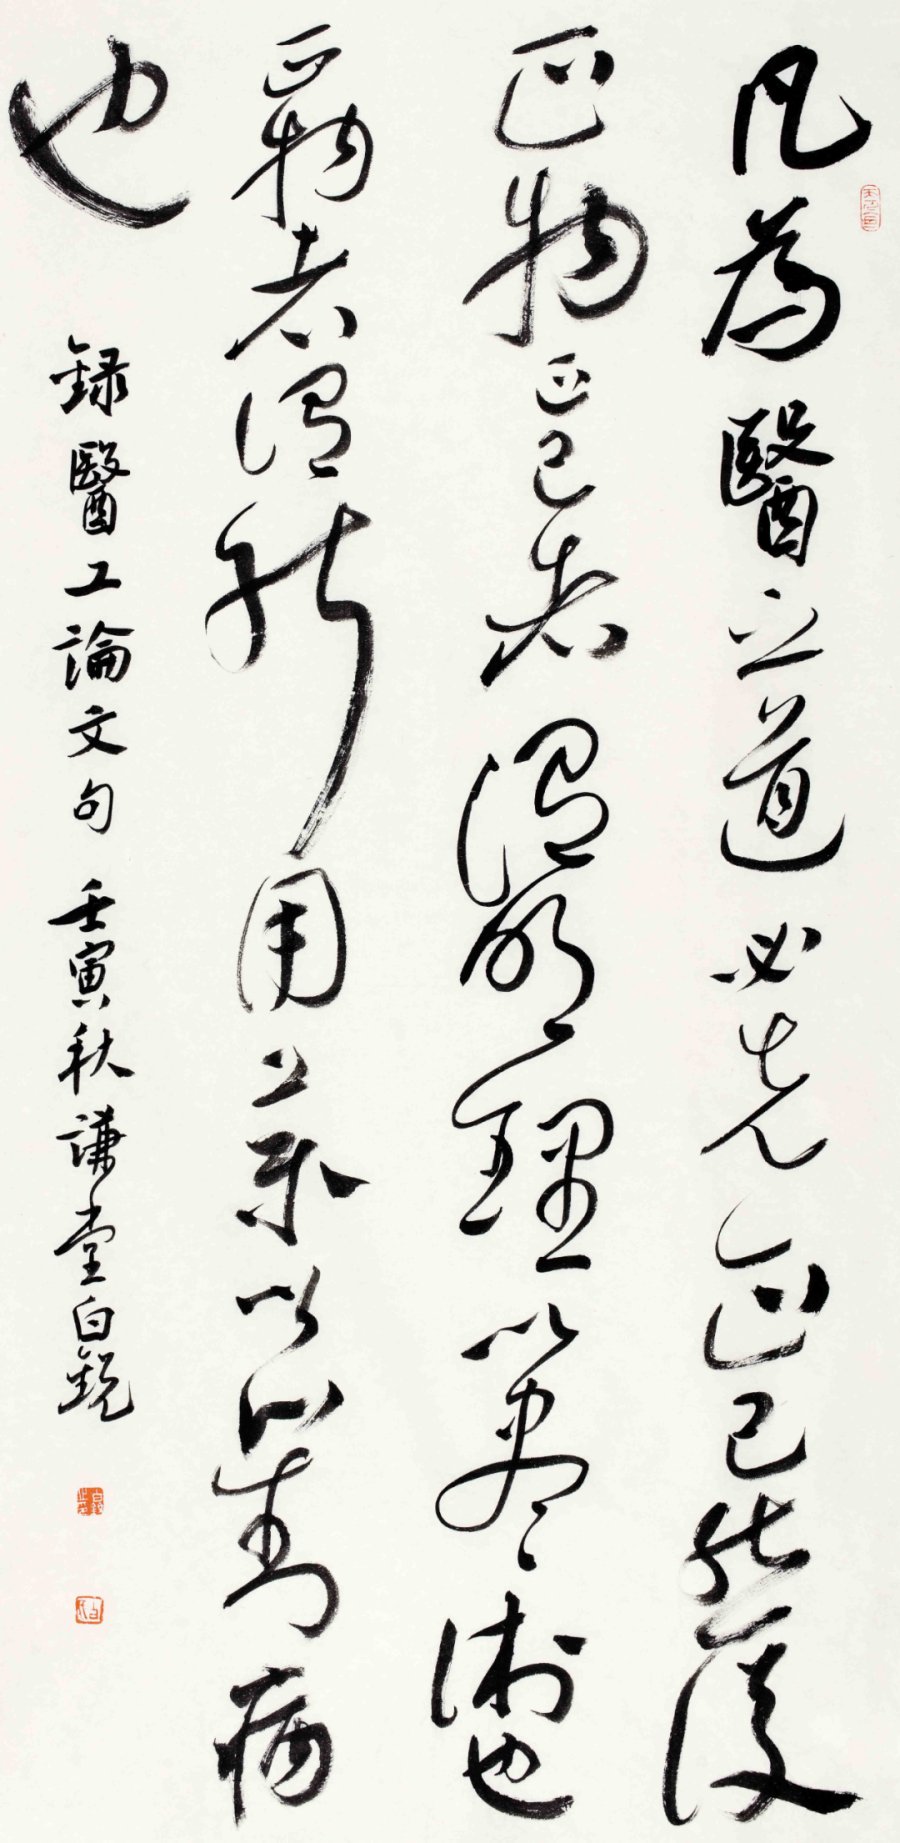 凡為醫之道必先正己然後
正物正己者謂明理以盡術也
正物者謂能用藥以對病
也
錄醫工論文句 壬寅秋謙堂白銳